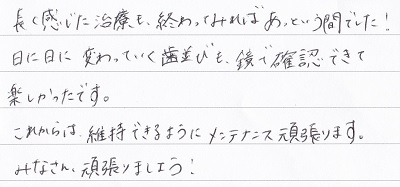 長く感じた治療も、終わってみればあっという間でした!
日に日に変わっていく歯並びも、鏡で確認できて
楽しかったです。
これからは、維持できるようにメンテナンス頑張ります。
みなさん、頑張りましょう!